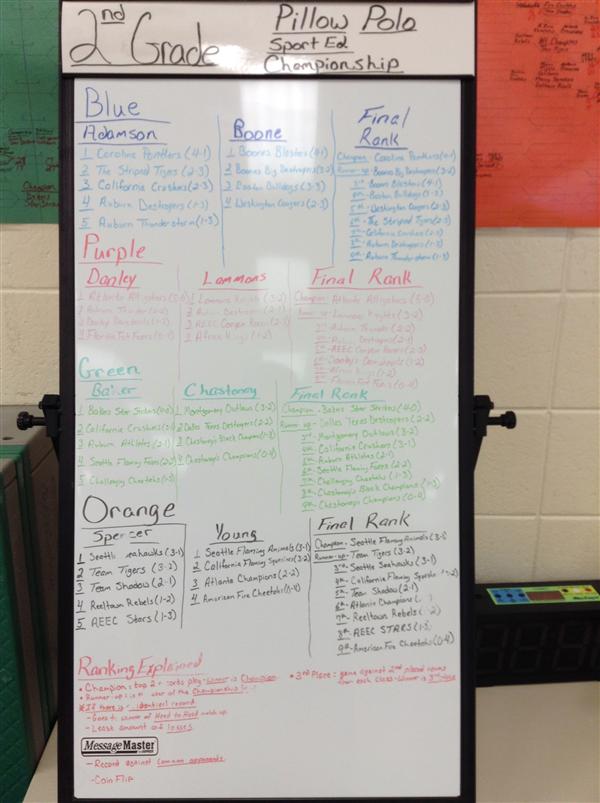 2nd Grade
Pillow Polo
Sport Ed
Championship
Blue
Adamson
1 Carolina Panthers (4-1)
2 The Striped Tigers (2-3)
3 California Crushers (2-3)
4 Auburn Destroyers (1-3)
5 Auburn Thunderstorm (1-3)
Boone
1 Boones Blasters (4-1)
2 Boones Big Destroyers (3-2)
3 Boston Bulldogs (3-3)
4 Washington Cougars (2-3)
Final
Rank
Champion - Carolina Panthers (4-1)
Runner-up - Boones Big Destroyers (3-2)
3rd - Boones Blasters (4-1)
4th - Boston Bulldogs (3-3)
5th - Washington Cougars (2-3)
6th - The Striped Tigers (2-3)
7th - California Crushers (2-3)
8th - Auburn Destroyers (1-3)
9th - Auburn Thunderstorm (1-3)
Purple
Danley
1 Atlanta Alligators (5-0)
2 Auburn Thunder (2-2)
3 Danley Daredevils (1-2)
4 Florida Foxes (0-4)
Lammons
1 Lammons Knights (3-2)
2 Auburn Destroyers (2-1)
3 AEEC Canyon Racers (2-3)
4 Africa Kings (1-2)
Final Rank
Champion - Atlanta Alligators (5-0)
Runner-up - Lammons Knights (3-2)
3rd - Auburn Thunder (2-2)
4th - Auburn Destroyers (2-1)
5th - AEEC Canyon Racers (2-3)
6th - Danley Daredevils (1-2)
7th - Africa Kings (1-2)
8th - Florida Foxes (0-4)
Green
Baker
1 Bakes Star Strikes (4-0)
2 California Crushers (3-1)
3 Auburn Athletes (2-1)
4 Seattle Flaming Foxes (2-2)
5 Challenging Cheetahs (1-3)
Chastoney
1 Montgomery Outlaws (3-2)
2 Dallas Texas Destroyers (2-2)
3 Chastonay's Black Champions (1-3)
4 Chastonay's Champions (0-4)
Final Rank
Champion - Bakes Star Strikes (4-0)
Runner up - Dallas Texas Destroyers (2-2)
3rd - Montgomery Outlaws (3-2)
4th - California Crushers (3-1)
5th - Auburn Athletes (2-1)
6th - Seattle Flaming Foxes (2-2)
7th - Challenging Cheetahs (1-3)
8th - Chastonay's Black Champions (1-3)
9th - Chastonay's Champions (0-4)
Orange
Spencer
1 Seattle Seahawks (3-1)
2 Team Tigers (3-2)
3 Team Shadow (2-1)
4 Reeltown Rebels (1-2)
5 AEEC Stars (1-3)
Young
1 Seattle Flaming Animals (3-1)
2 California Flaming Sparklies (3-2)
3 Atlanta Champions (2-2)
4 American Fire Cheetahs (0-4)
Final Rank
Champion - Seattle Flaming Animals (3-1)
Runner-up - Team Tigers (3-2)
3rd - Seattle Seahawks (3-1)
4th - California Flaming
5th - Team Shadow (2-1)
6th - Atlanta Champions
7th - Reeltown Rebels
8th - AEEC STARS (1-3)
9th - American Fire Cheetahs (0-4)
Ranking Explained
• Champion: top 2 play - Winner is Champion
• Runner-up: of the Championship
* If there is identical record
- Goes to winner of Head to Head match up
- Least amount of losses
MessageMaster
- Record against Common opponents
- Coin Flip
• 3rd Place: game against 2nd placed teams
from each class - Winner is 3rd place